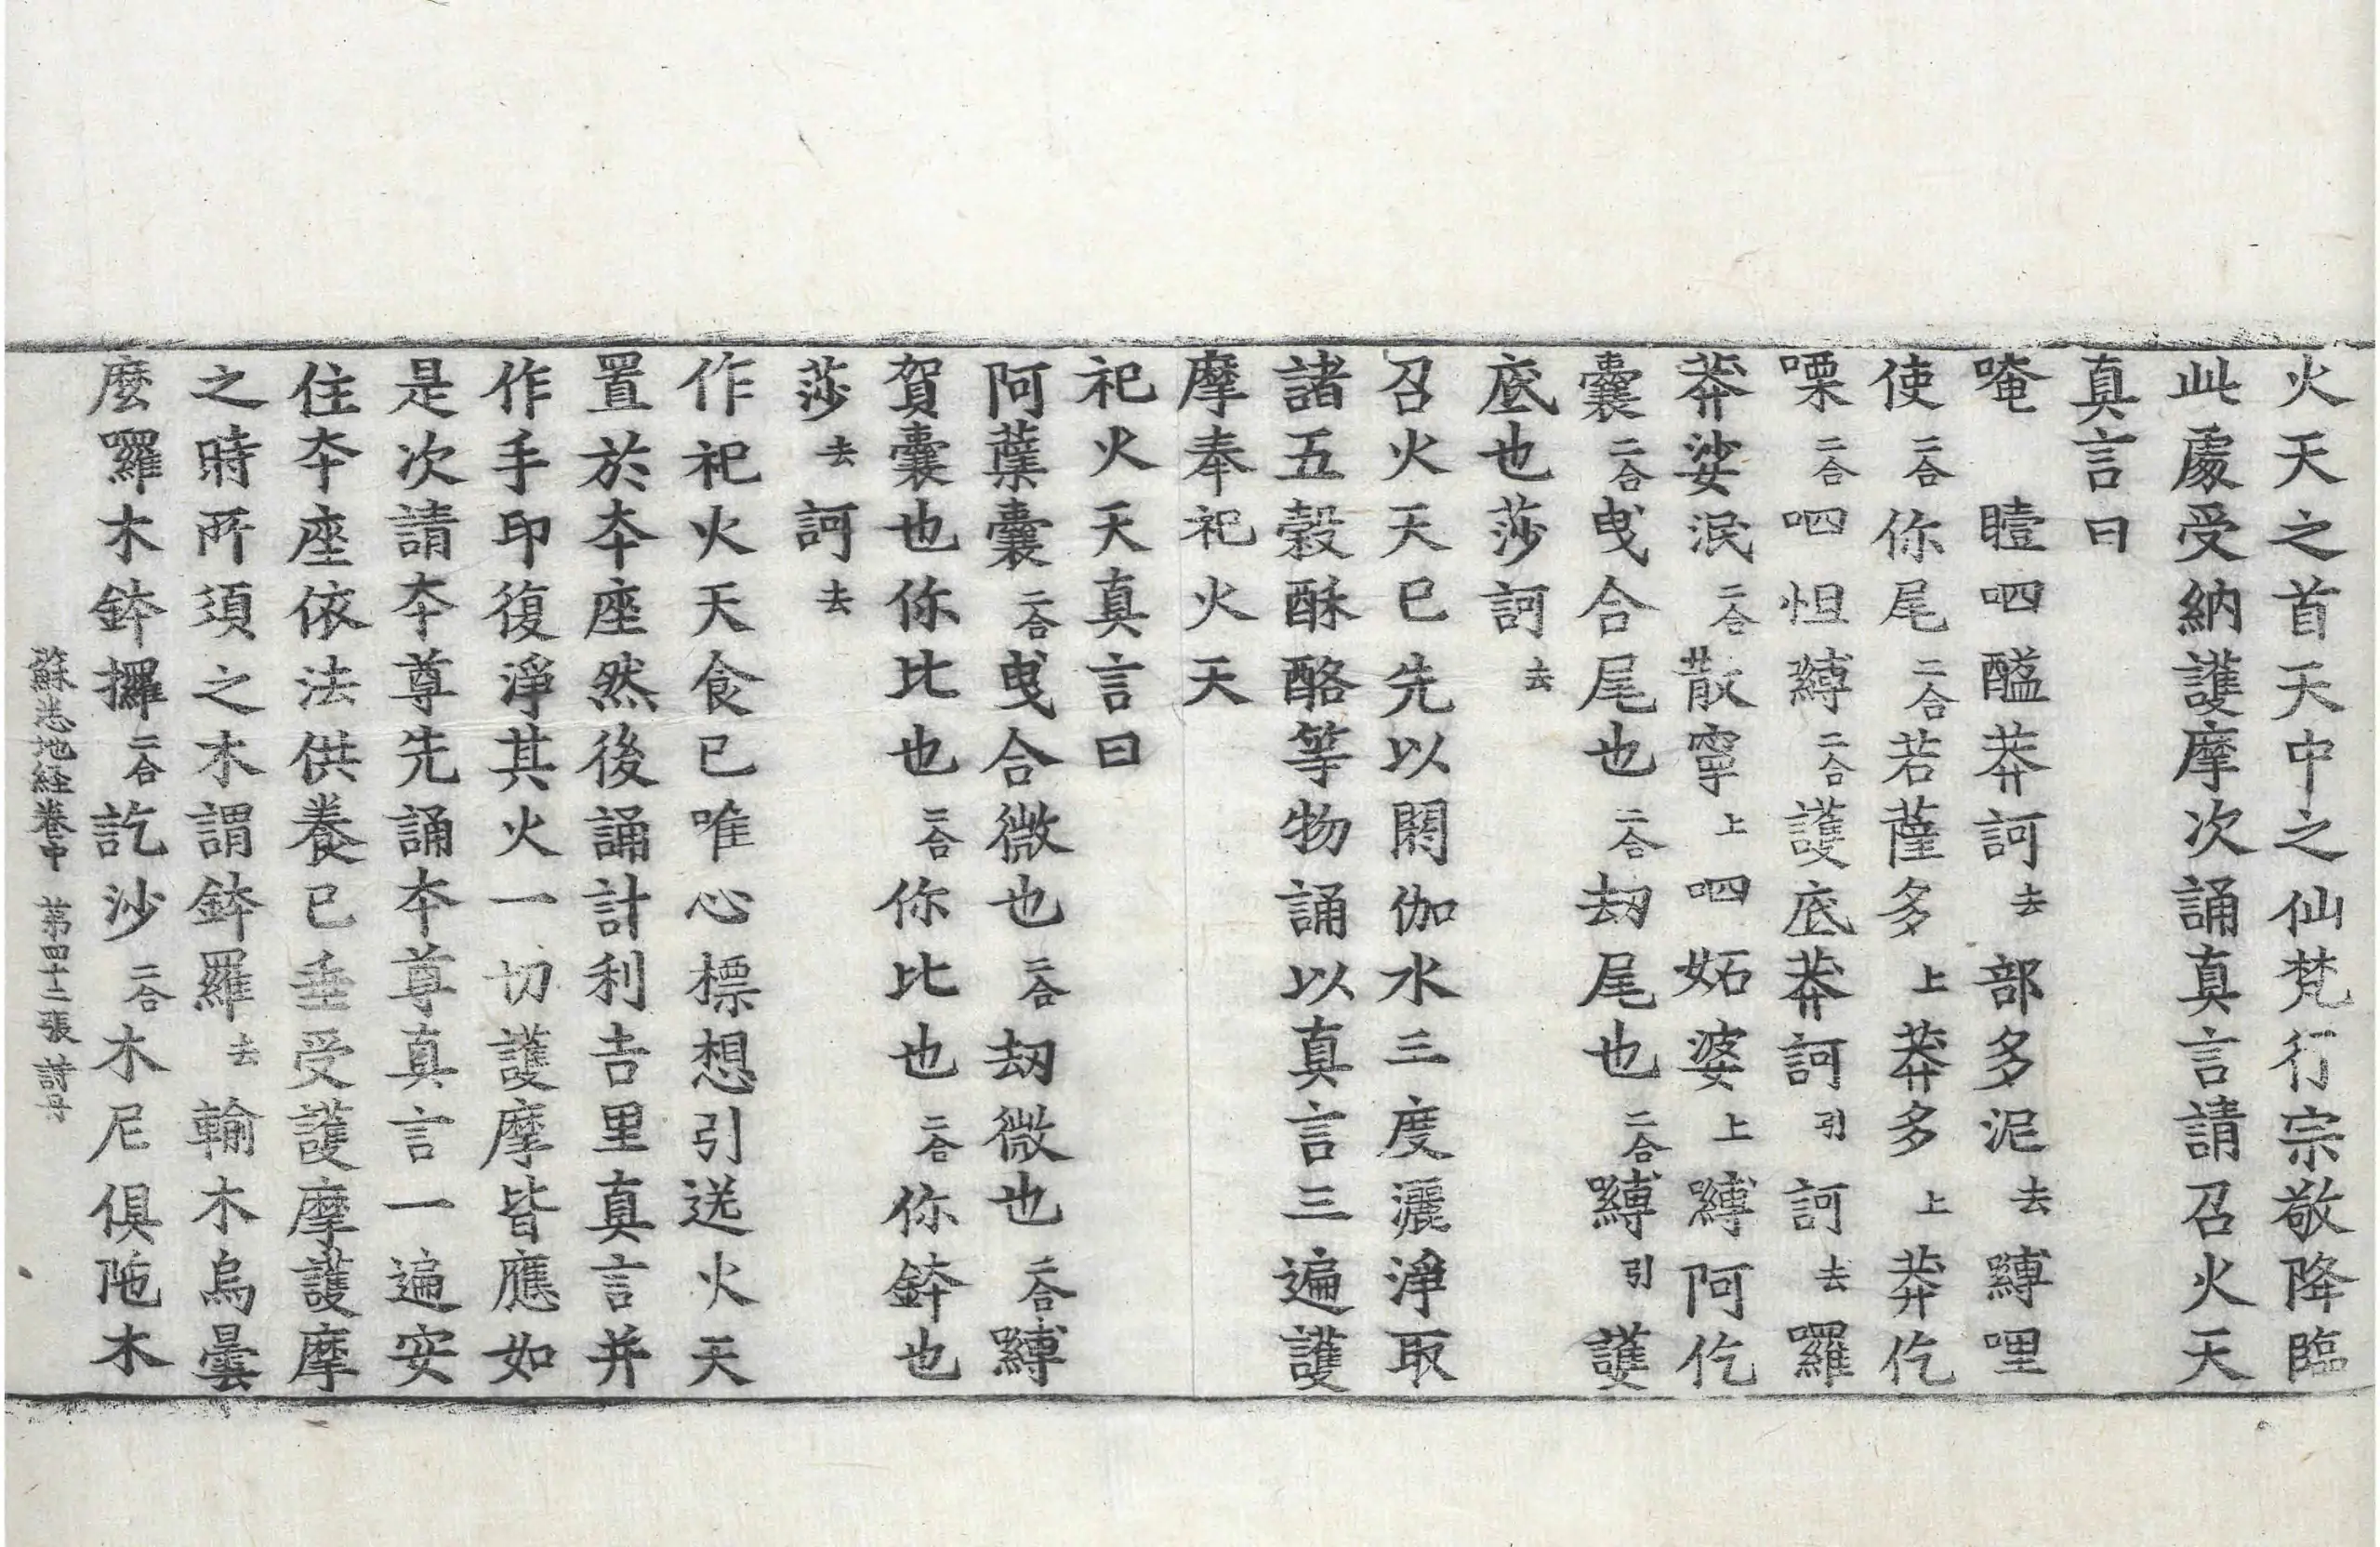 火天之首天中之仙梵行宗敬降臨
此處受納護摩次誦真言請召火天
真言曰
唵 曀呬醯莽訶去部多泥去嚩哩
使二合你尾二合若薩多上莽多上莽仡
㗚二合呬怛嚩二合護底莽訶引訶去羅
莽娑泯二合散寧上呬妬婆上嚩阿仡
囊二合曳合尾也二合刧尾也二合嚩引護
底也莎訶去
召火天已先以閼伽水三度灑淨取
諸五穀酥酪等物誦以真言三遍護
摩奉祀火天
祀火天真言曰
阿蘗囊二合曳合微也二合刧微也二合嚩
賀囊也你比也二合你比也二合你鉢也
莎去訶去
作祀火天食已唯心標想引送火天
置於夲座然後誦計利吉里真言并
作手印復淨其火一切護摩皆應如
是次請夲尊先誦夲尊真言一遍安
住夲座依法供養已垂受護摩護摩
之時所須之木謂鉢羅去輸木烏曇
麼囉木鉢攞二合訖沙二合木尼俱陁木
蘇悉地經卷中 第四十二張 詩号